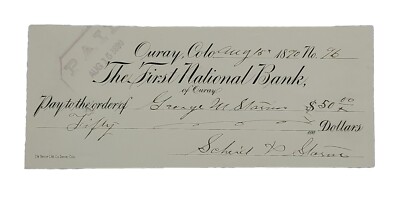 PAID
Ouray, Colo Aug 15 1890 No. 96
The First National Bank,
of Ouray
Pay to the order of George W. Storm $50 00
Fifty Dollars
& Storm